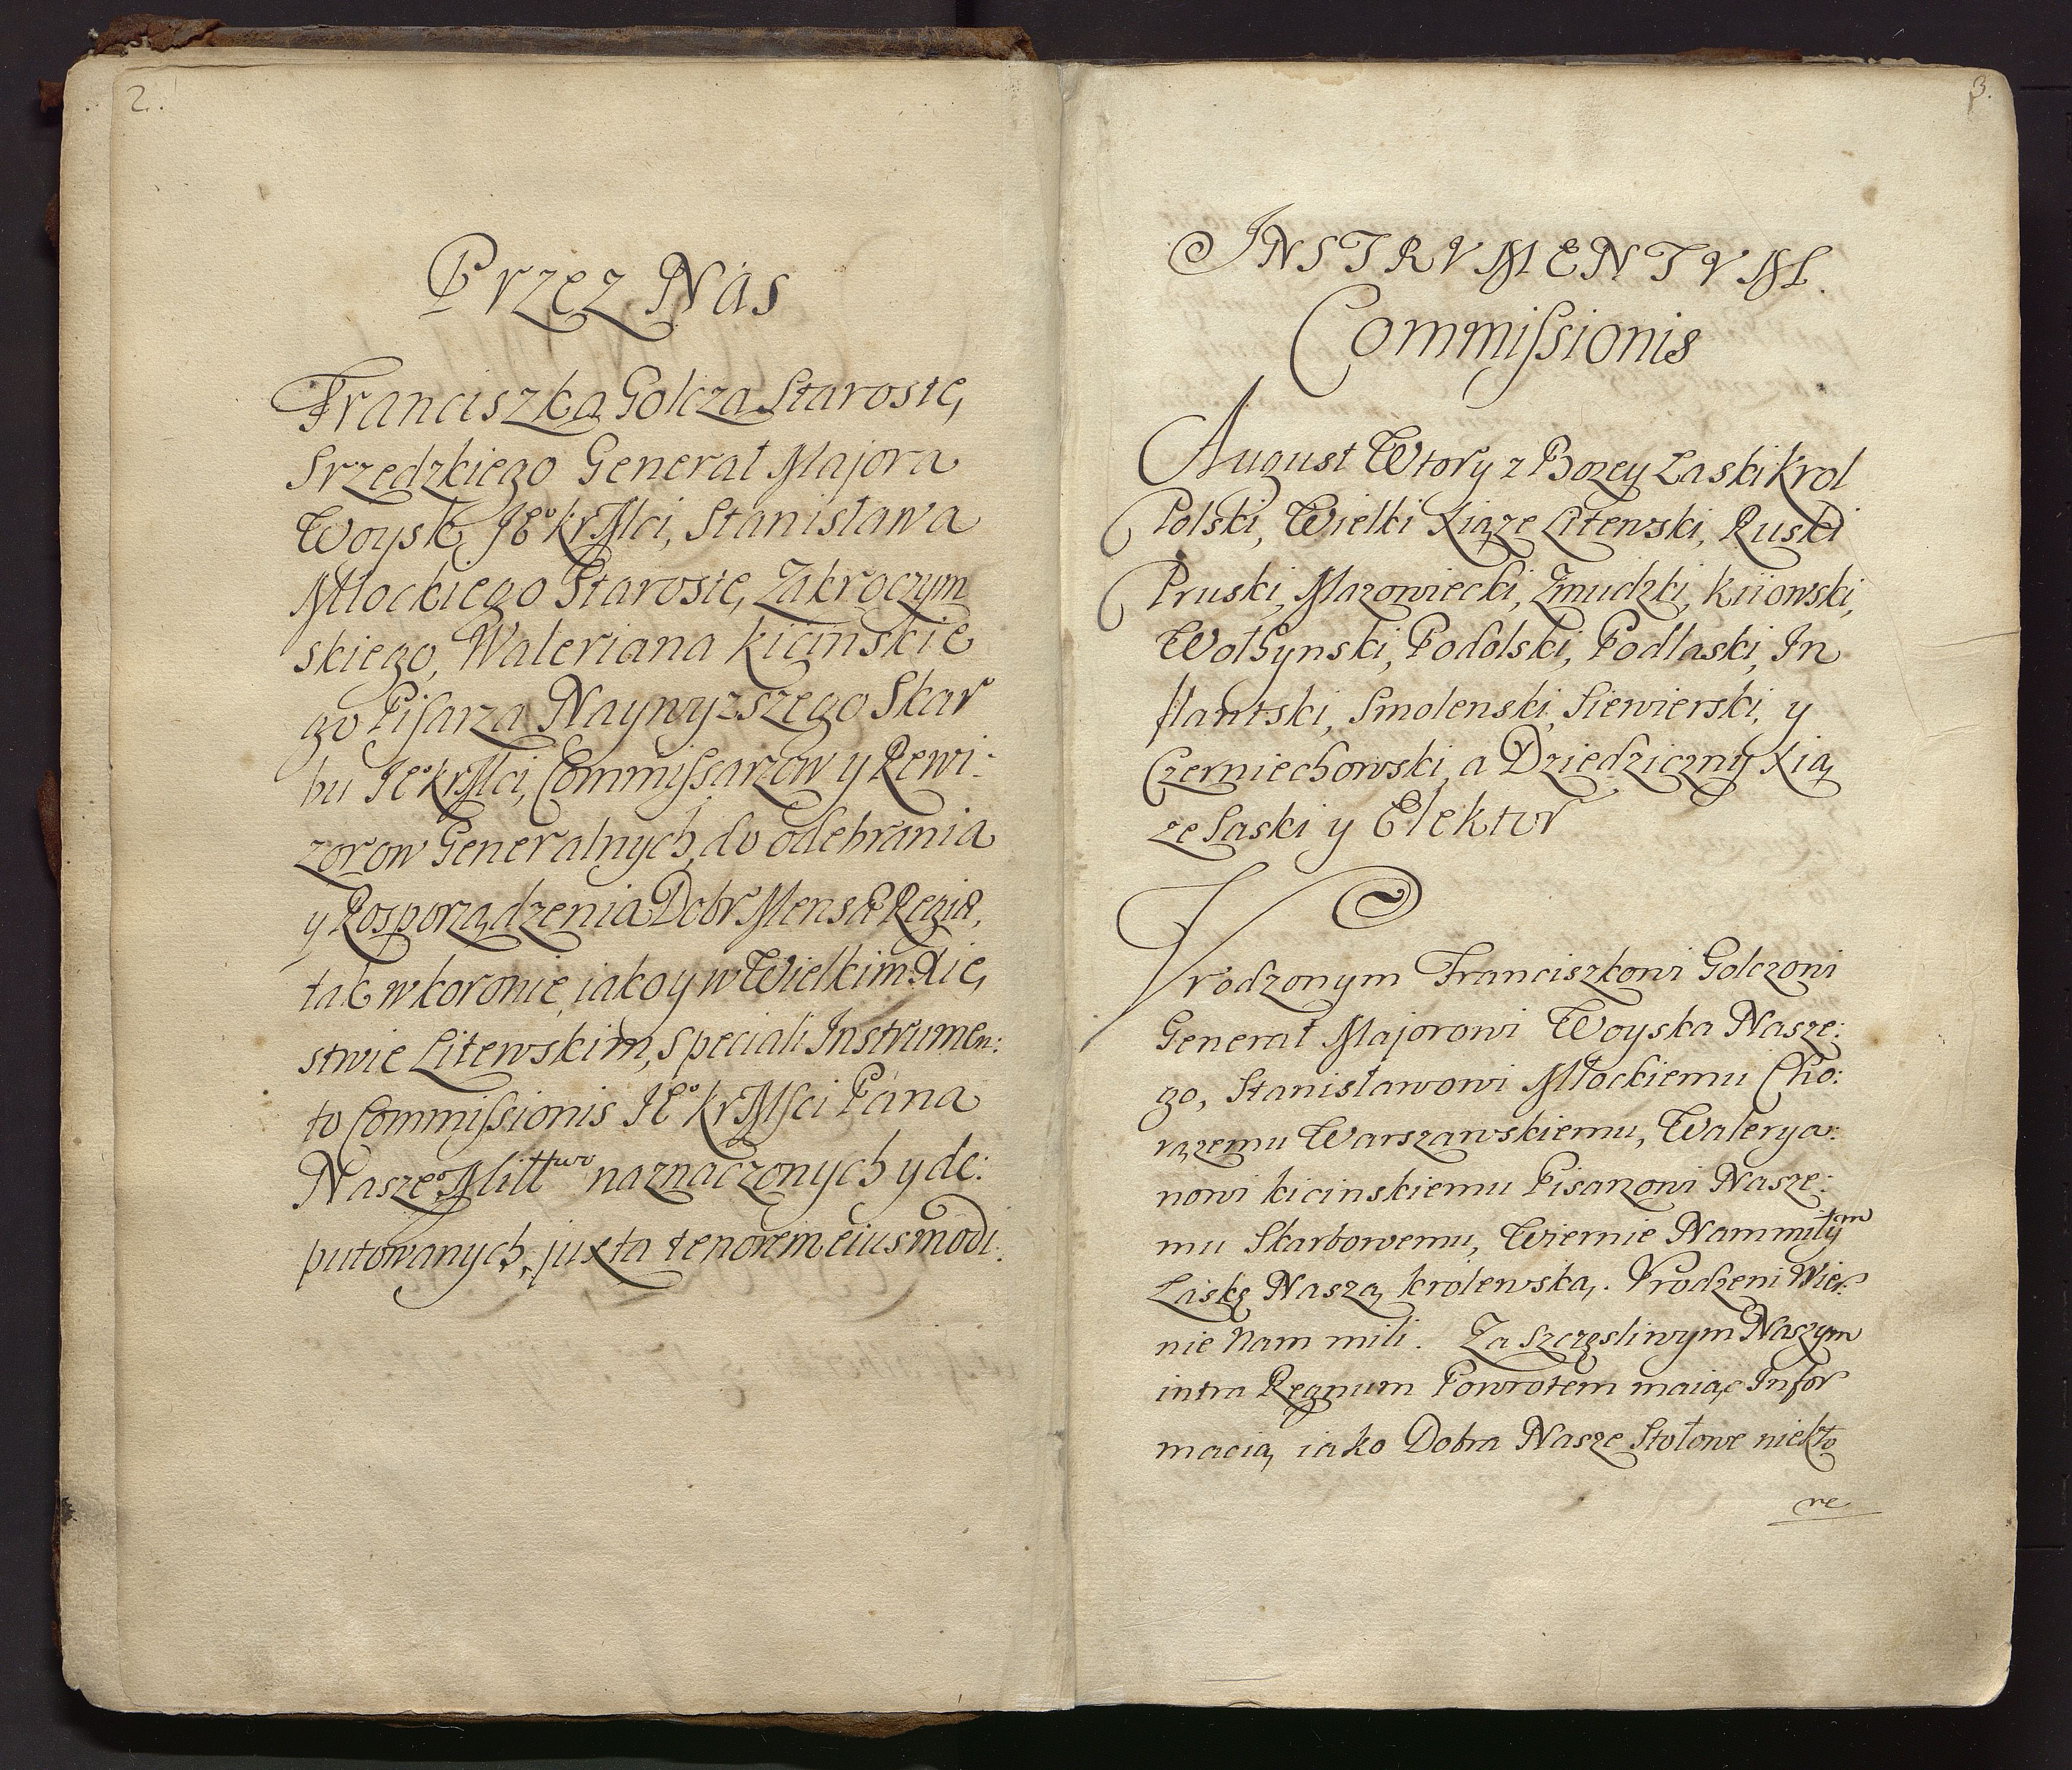 2.
Przez Nas
Franciszka Golcza Starostę
Srzedzkiego Generał Majora
Woysk JE° KrMci, Stanisława
Młockiego Starostę Zakroczym
skiego, Waleriana Kicinskie
go Pisarza Naywyzszego Skar
bu JE° KrMci, Commissarzow y Rewi:
zorow Generalnych, do odebrania
y Rosporządzenia Dobr Mensæ Regiæ,
tak w koronie, iako y w Wielkim Xię
stwie Litewskim, Speciali Instrumen:
to Commissionis JE° KrMsci Pana
Nasze° Mill^wo naznaczonych y de:
putowanych, juxta tenorem eiusmodi.
3.
INSTRVMENTVM.
Commissionis
August Wtory z Bozey Laski Krol
Polski, Wielki Xiąze Litewski, Ruski
Pruski, Mazowiecki, Zmudzki, Kiiowski,
Wolhynski, Podolski, Podlaski, In
flantski, Smolenski, Siewierski, y
Czerniechowski, a Dziedziczny Xią
ze Saski y Elektor
Vrodzonym Franciszkowi Golczowi
Generał Majorowi Woyska Nasze:
go, Stanisławowi Młockiemu Cho:
rązemu Warszawskiemu, Walerya:
nowi Kicinskiemu Pisarzowi Nasze:
mu Skarbowemu, Wiernie Nam miłym
Laskę Naszą krolewską. Vrodzeni Wier:
nie Nam mili. Za Szczęsliwym Naszym
intra Regnum Powrotem maiąc Infor
macią, iako Dobra Nasze Stołowe niekto
re